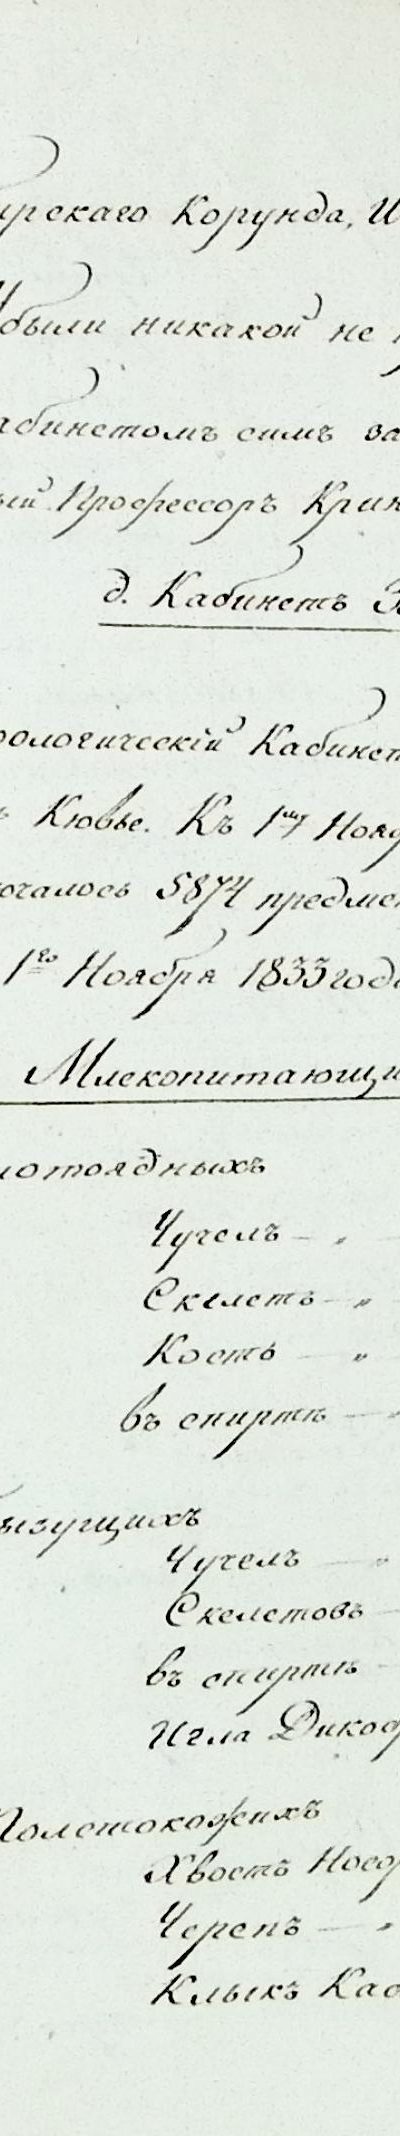 ирскаго Корунда, И
Убыли никакой не
абинетомъ симъ за
ый Профессоръ Крин
д. Кабинетъ Зо
оологическій Кабинет
ъ Кювье. Къ 1му Нояб
ючалось 5874 предме
1го Ноября 1833 года
Млекопитающи
лотоядныхъ
Чучелъ — „
Скелетъ — „
Кость — „
въ спиртѣ — „
ызущихъ
Чучелъ — „
Скелетовъ —
въ спиртѣ —
Игла Дикоб
Толстокожихъ
Хвостъ Носор
Черепъ — „
Клыкъ Каб